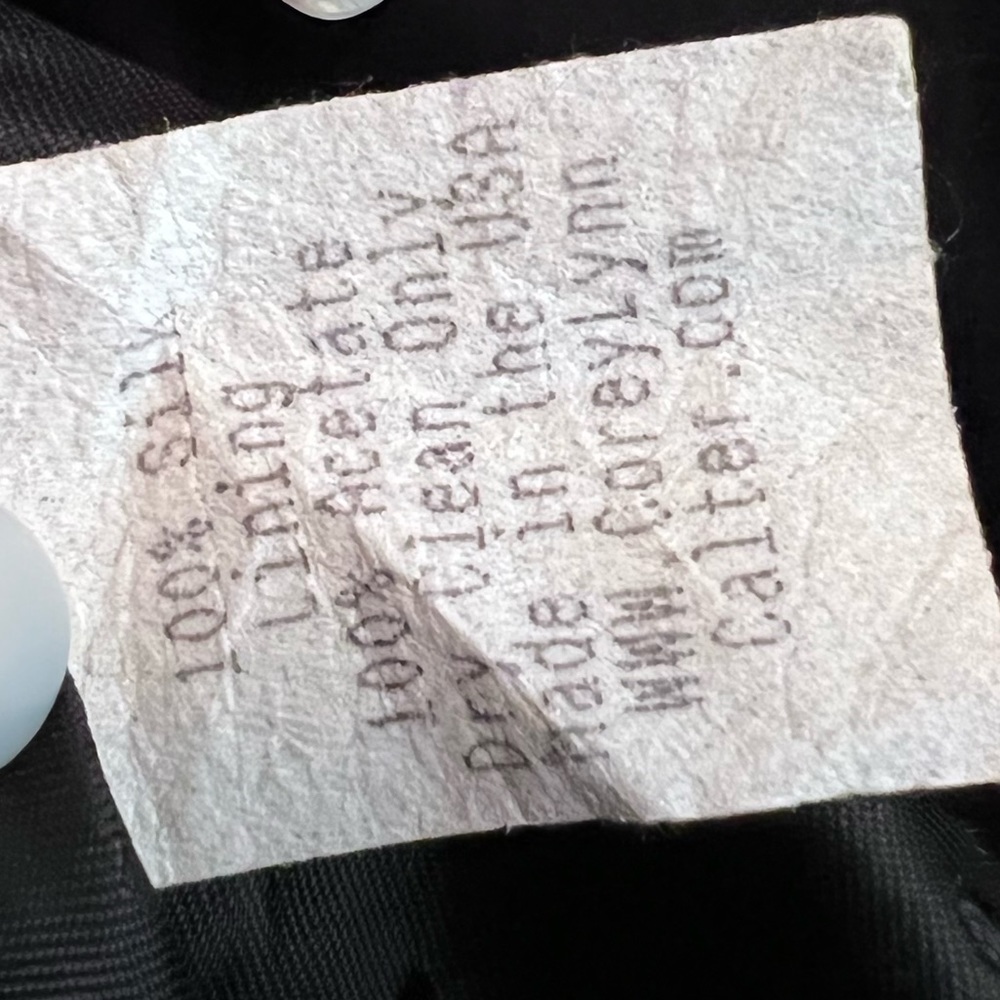 100% Silk
Lining
100% Acetate
Dry Clean Only
Made in the USA
WWW.CoreyLynn
Calter.com